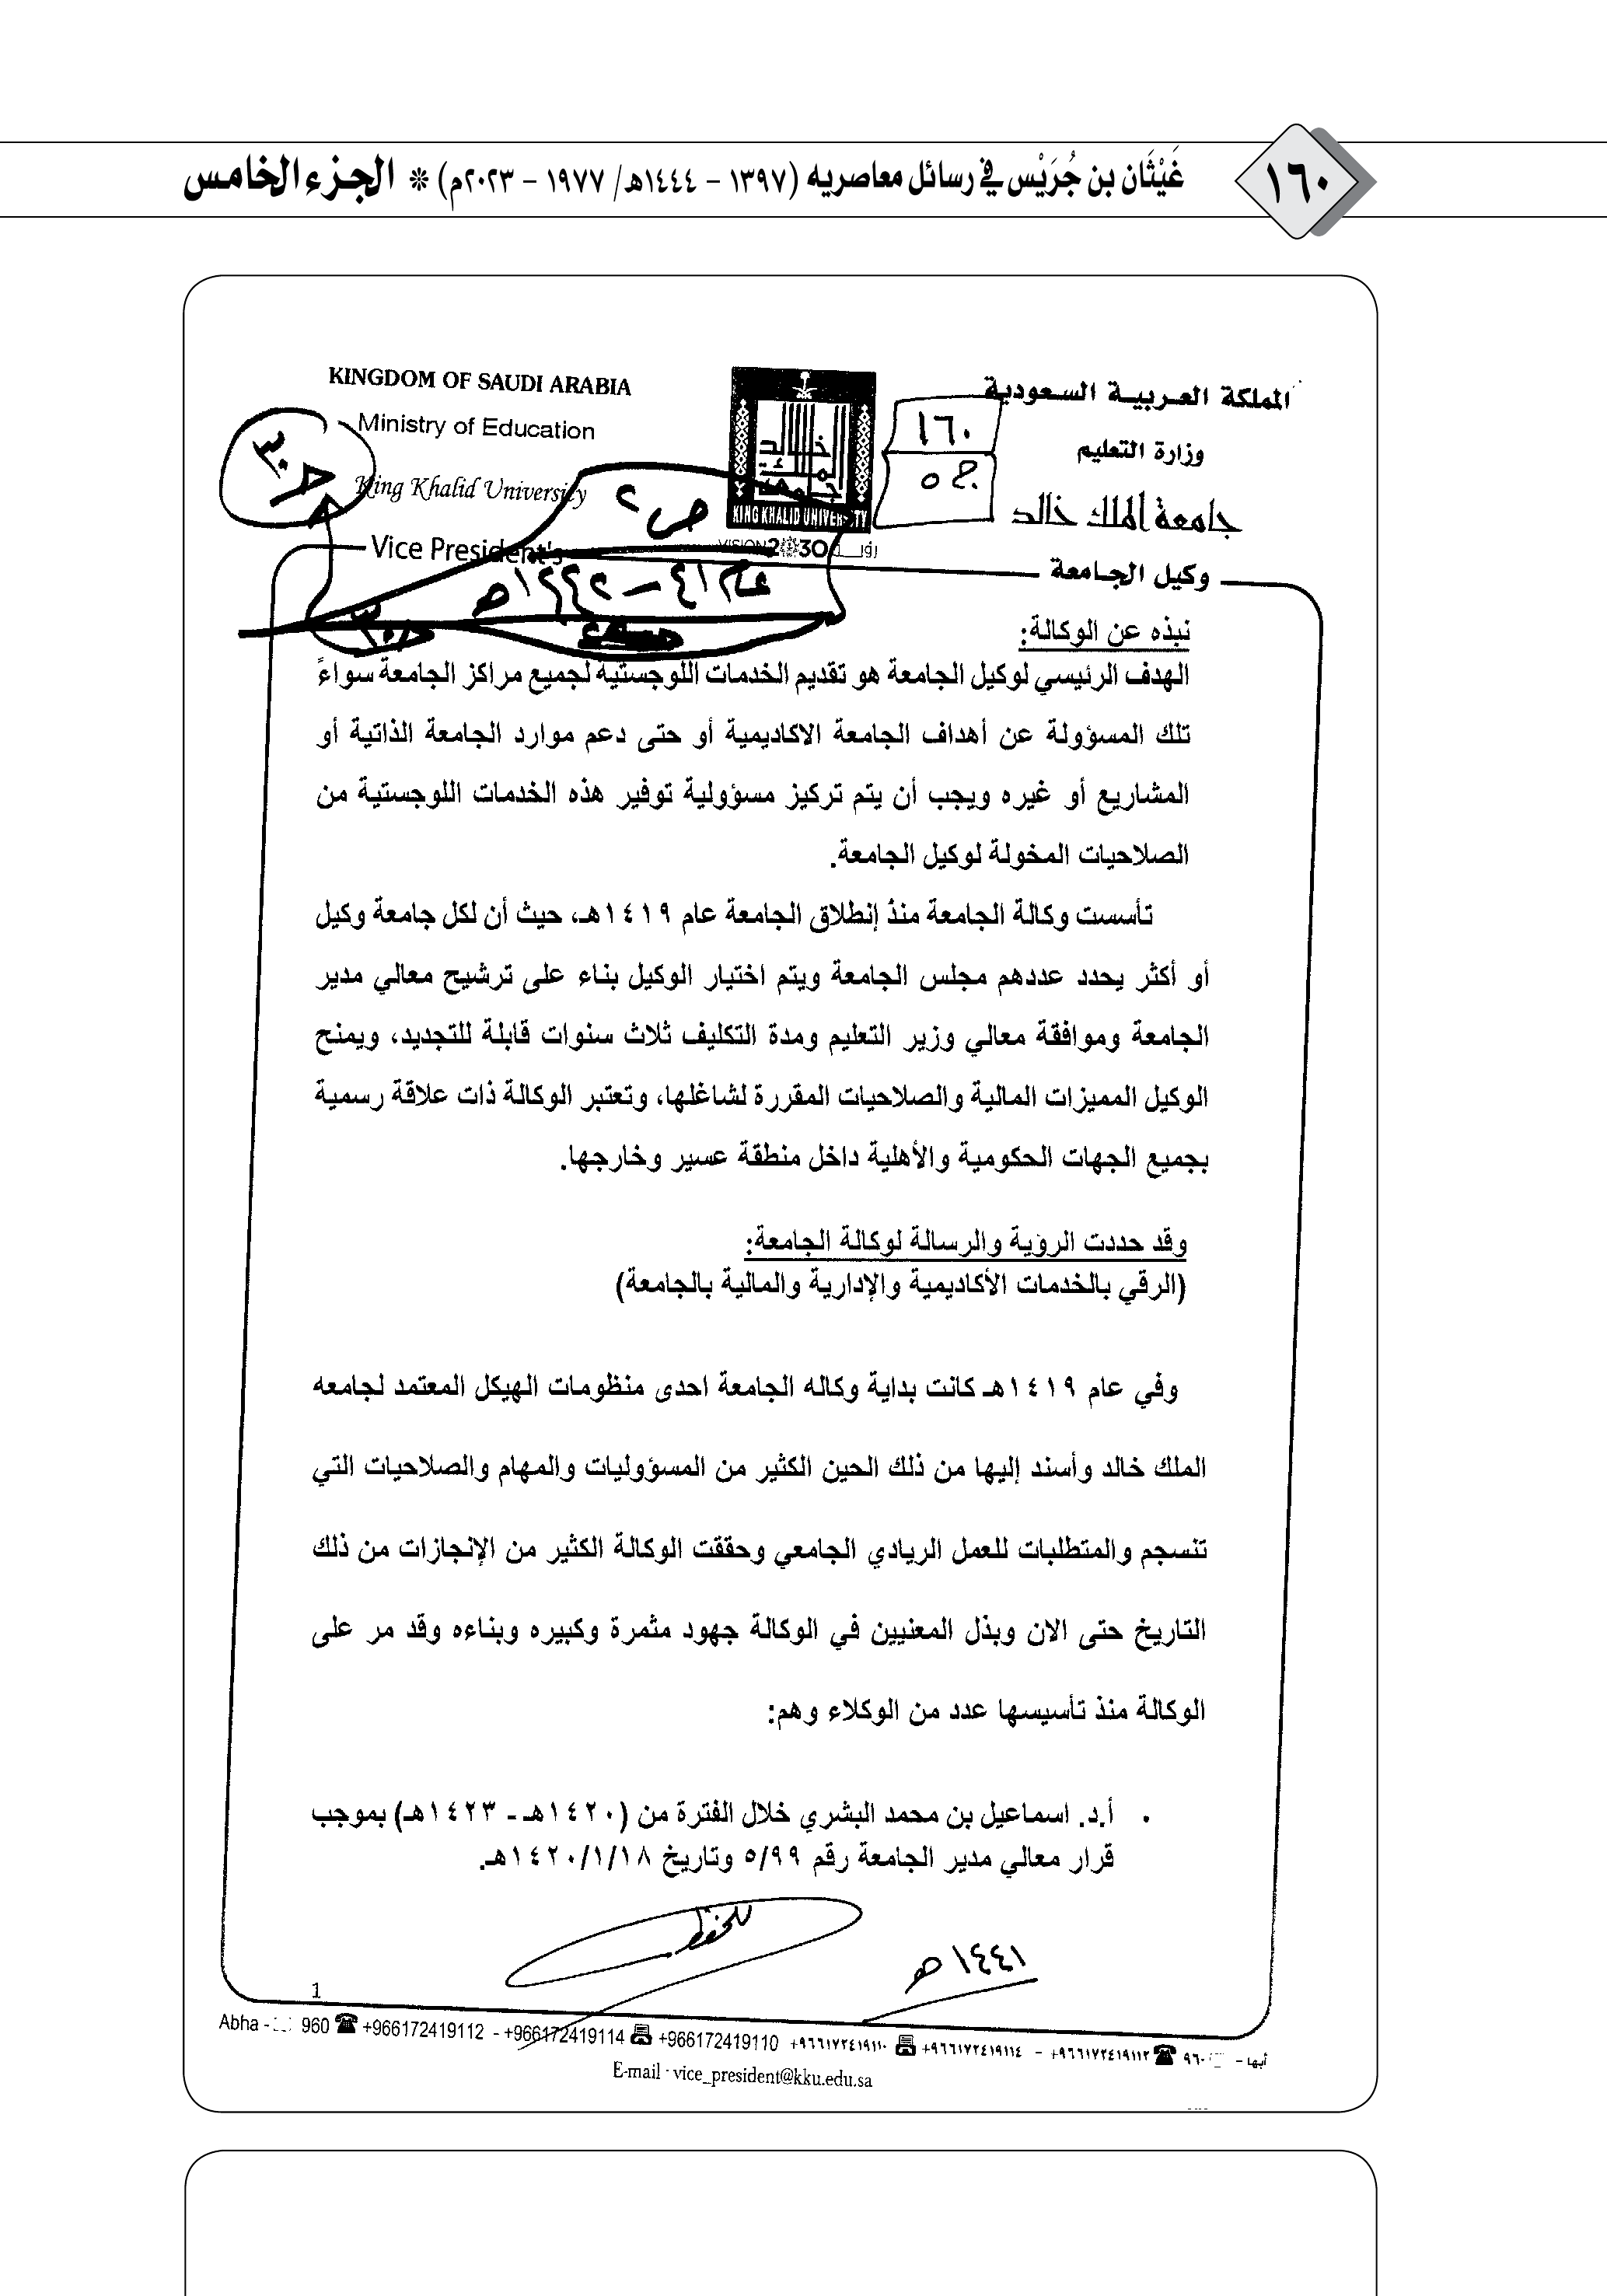 ١٦٠
غَيْثَان بن جُرَيْس في رسائل معاصريه (١٣٩٧ - ١٤٤٤هـ/ ١٩٧٧ - ٢٠٢٣م) ❊ الجزء الخامس
المملكة العربية السعودية
وزارة التعليم
جامعة الملك خالد
وكيل الجامعة
KINGDOM OF SAUDI ARABIA
Ministry of Education
King Khalid University
Vice President's
KING KHALID UNIVERSITY
VISION 2030 رؤيـــة
١٦٠
ص ٢
عام ٤١ – ١٤٤٢هـ
نبذه عن الوكالة:
الهدف الرئيسي لوكيل الجامعة هو تقديم الخدمات اللوجستيه لجميع مراكز الجامعة سواءً
تلك المسؤولة عن أهداف الجامعة الاكاديمية أو حتى دعم موارد الجامعة الذاتية أو
المشاريع أو غيره ويجب أن يتم تركيز مسؤولية توفير هذه الخدمات اللوجستية من
الصلاحيات المخولة لوكيل الجامعة.
تأسست وكالة الجامعة منذُ إنطلاق الجامعة عام ١٤١٩هـ، حيث أن لكل جامعة وكيل
أو أكثر يحدد عددهم مجلس الجامعة ويتم اختيار الوكيل بناء على ترشيح معالي مدير
الجامعة وموافقة معالي وزير التعليم ومدة التكليف ثلاث سنوات قابلة للتجديد، ويمنح
الوكيل المميزات المالية والصلاحيات المقررة لشاغلها، وتعتبر الوكالة ذات علاقة رسمية
بجميع الجهات الحكومية والأهلية داخل منطقة عسير وخارجها.
وقد حددت الرؤية والرسالة لوكالة الجامعة:
(الرقي بالخدمات الأكاديمية والإدارية والمالية بالجامعة)
وفي عام ١٤١٩هـ كانت بداية وكاله الجامعة احدى منظومات الهيكل المعتمد لجامعه
الملك خالد وأسند إليها من ذلك الحين الكثير من المسؤوليات والمهام والصلاحيات التي
تنسجم والمتطلبات للعمل الريادي الجامعي وحققت الوكالة الكثير من الإنجازات من ذلك
التاريخ حتى الان وبذل المعنيين في الوكالة جهود مثمرة وكبيره وبناءه وقد مر على
الوكالة منذ تأسيسها عدد من الوكلاء وهم:
• أ.د. اسماعيل بن محمد البشري خلال الفترة من (١٤٢٠هـ - ١٤٢٣هـ) بموجب
قرار معالي مدير الجامعة رقم ٥/٩٩ وتاريخ ١٤٢٠/١/١٨هـ.
للحفظ
١٤٤١ هـ
1
Abha - 960 ☎ +966172419112 - +966172419114 📠 +966172419110 +٩٦٦١٧٢٤١٩١١٠ 📠 +٩٦٦١٧٢٤١٩١١٤ - +٩٦٦١٧٢٤١٩١١٢ ☎ ٩٦٠ أبها -
E-mail - vice_president@kku.edu.sa